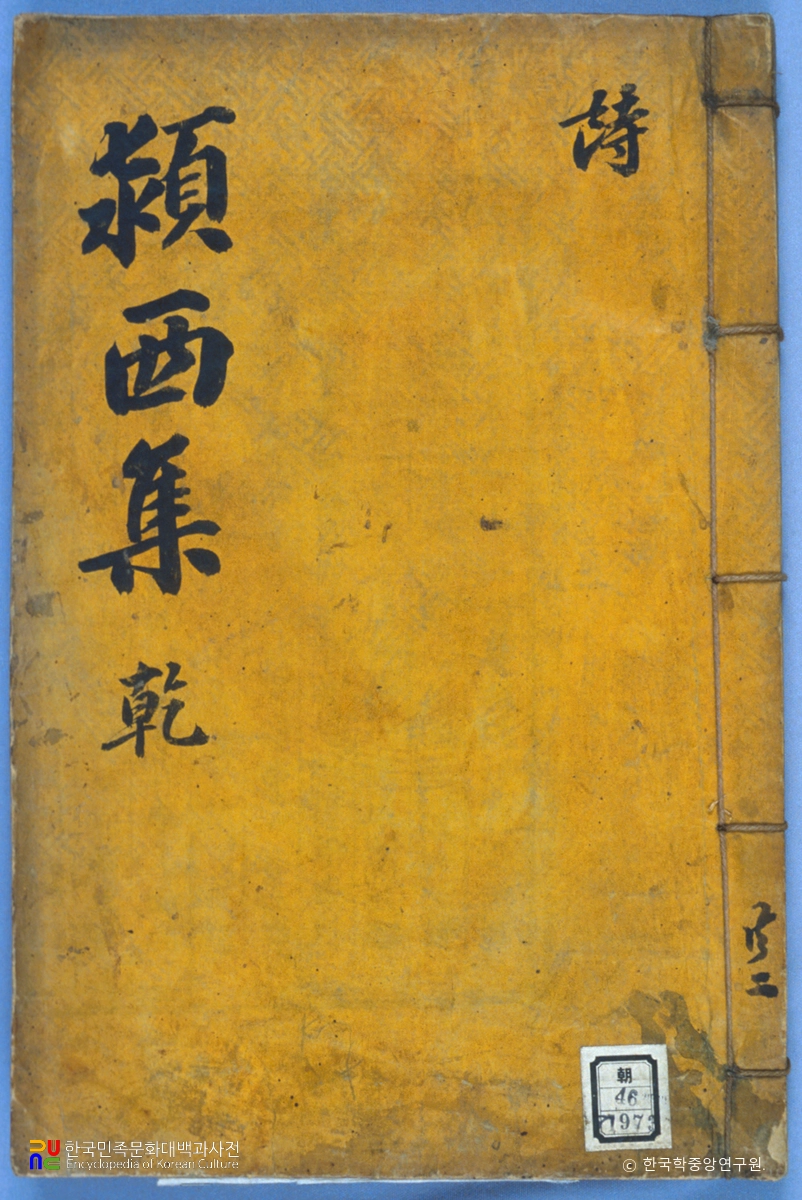 詩
潁西集 乾
共二
朝
46
ㄱ1973
한국민족문화대백과사전
Encyclopedia of Korean Culture
© 한국학중앙연구원